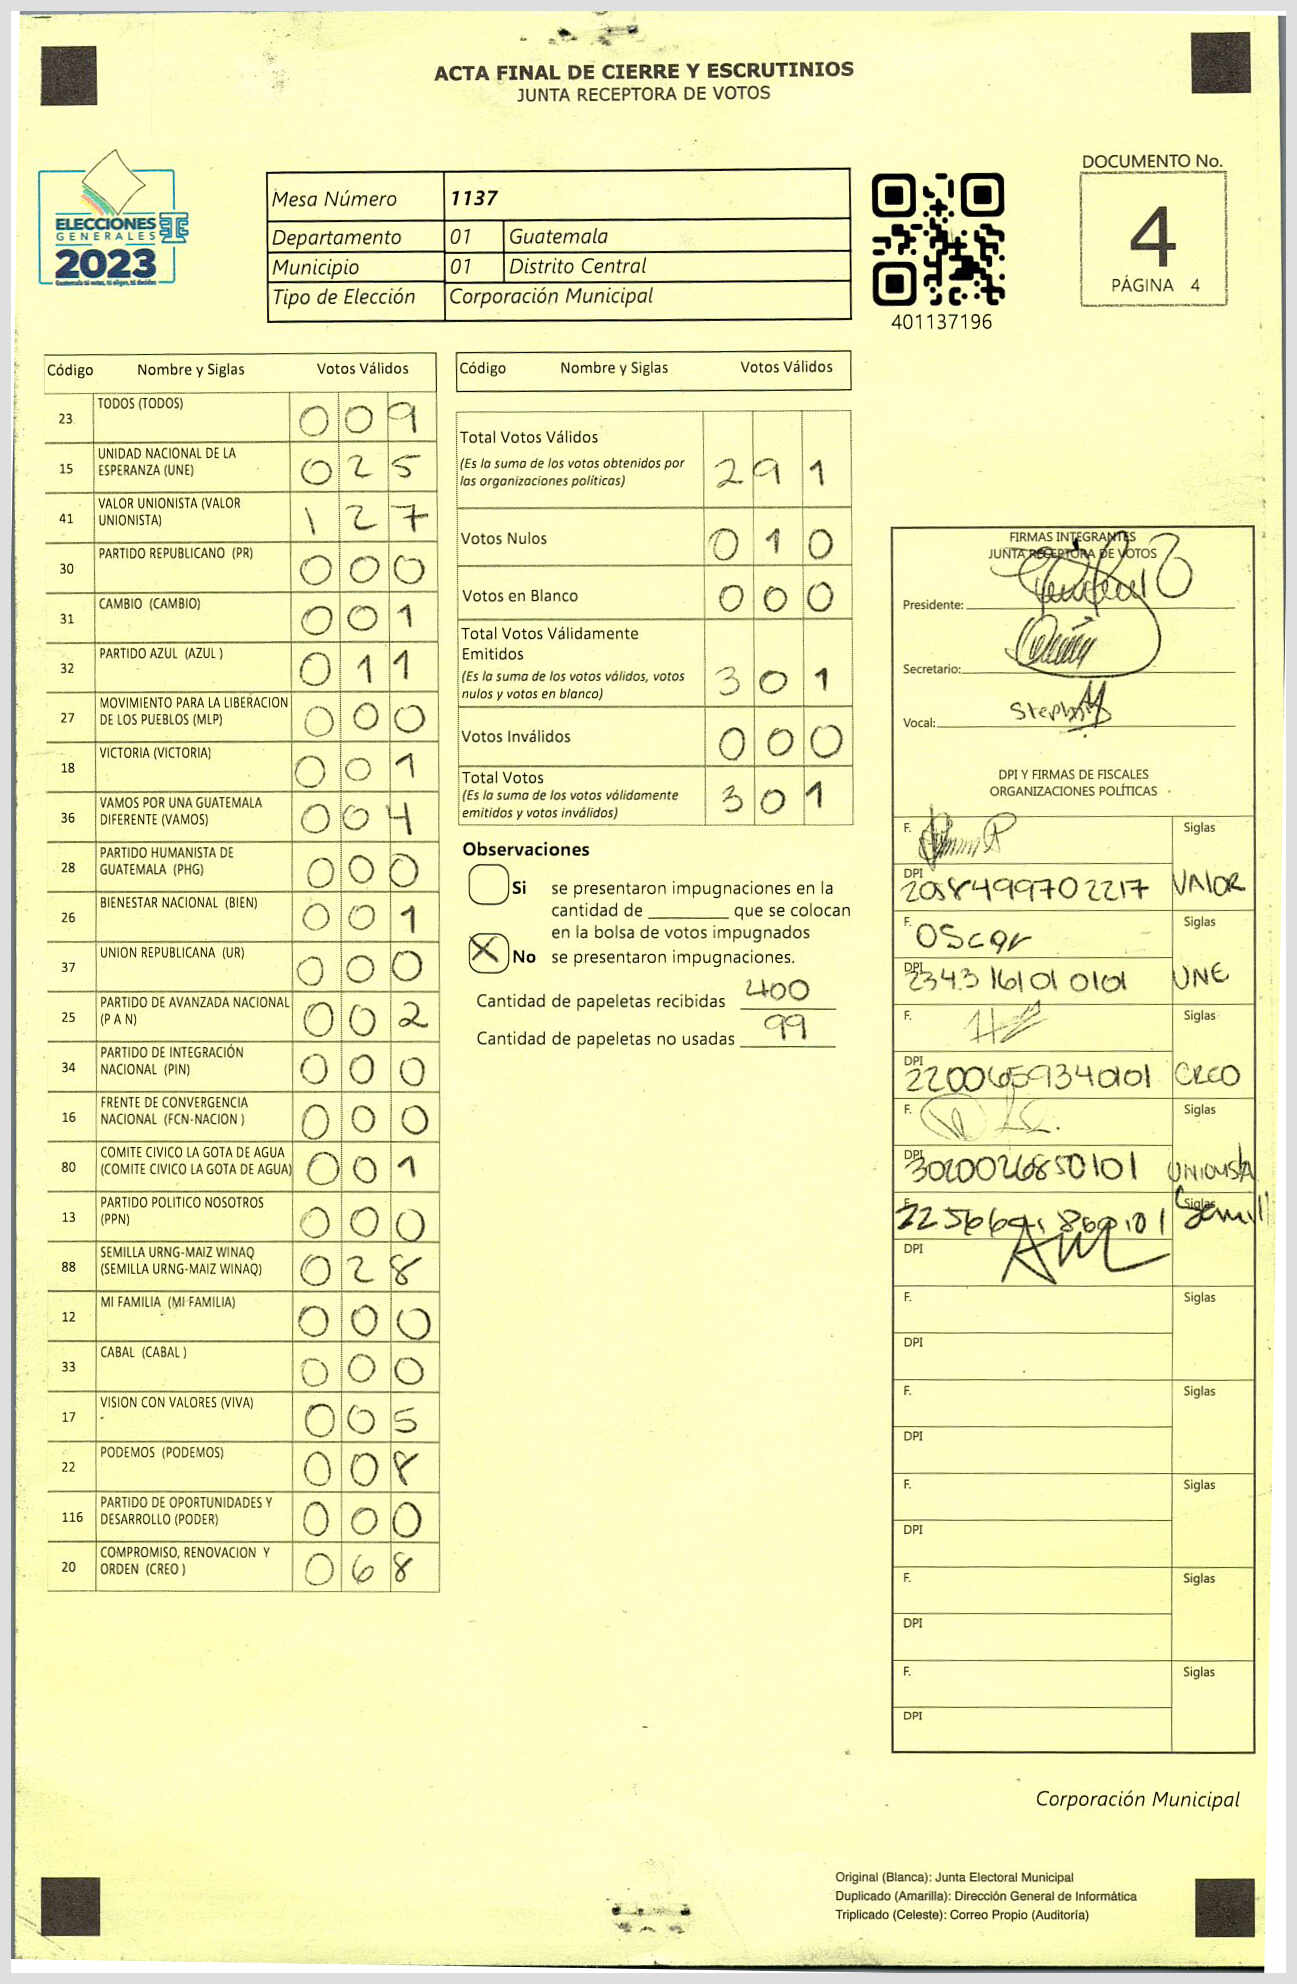 ACTA FINAL DE CIERRE Y ESCRUTINIOS
JUNTA RECEPTORA DE VOTOS
ELECCIONES
GENERALES
2023
Mesa Número 1137
Departamento 01 Guatemala
Municipio 01 Distrito Central
Tipo de Elección Corporación Municipal
401137196
DOCUMENTO No.
4
PÁGINA 4
Código Nombre y Siglas Votos Válidos
23 TODOS (TODOS) 0 0 9
15 UNIDAD NACIONAL DE LA
ESPERANZA (UNE) 0 2 5
41 VALOR UNIONISTA (VALOR
UNIONISTA) 1 2 7
30 PARTIDO REPUBLICANO (PR) 0 0 0
31 CAMBIO (CAMBIO) 0 0 1
32 PARTIDO AZUL (AZUL ) 0 1 1
27 MOVIMIENTO PARA LA LIBERACION
DE LOS PUEBLOS (MLP) 0 0 0
18 VICTORIA (VICTORIA) 0 0 1
36 VAMOS POR UNA GUATEMALA
DIFERENTE (VAMOS) 0 0 4
28 PARTIDO HUMANISTA DE
GUATEMALA (PHG) 0 0 0
26 BIENESTAR NACIONAL (BIEN) 0 0 1
37 UNION REPUBLICANA (UR) 0 0 0
25 PARTIDO DE AVANZADA NACIONAL
(P A N) 0 0 2
34 PARTIDO DE INTEGRACIÓN
NACIONAL (PIN) 0 0 0
16 FRENTE DE CONVERGENCIA
NACIONAL (FCN-NACION ) 0 0 0
80 COMITE CIVICO LA GOTA DE AGUA
(COMITE CIVICO LA GOTA DE AGUA) 0 0 1
13 PARTIDO POLITICO NOSOTROS
(PPN) 0 0 0
88 SEMILLA URNG-MAIZ WINAQ
(SEMILLA URNG-MAIZ WINAQ) 0 2 8
12 MI FAMILIA (MI FAMILIA) 0 0 0
33 CABAL (CABAL ) 0 0 0
17 VISION CON VALORES (VIVA) 0 0 5
22 PODEMOS (PODEMOS) 0 0 8
116 PARTIDO DE OPORTUNIDADES Y
DESARROLLO (PODER) 0 0 0
20 COMPROMISO, RENOVACION Y
ORDEN (CREO ) 0 6 8
Código Nombre y Siglas Votos Válidos
Total Votos Válidos
(Es la suma de los votos obtenidos por
las organizaciones políticas) 2 9 1
Votos Nulos 0 1 0
Votos en Blanco 0 0 0
Total Votos Válidamente
Emitidos
(Es la suma de los votos válidos, votos
nulos y votos en blanco) 3 0 1
Votos Inválidos 0 0 0
Total Votos
(Es la suma de los votos válidamente
emitidos y votos inválidos) 3 0 1
Observaciones
Si se presentaron impugnaciones en la
cantidad de ________ que se colocan
en la bolsa de votos impugnados
X No se presentaron impugnaciones.
Cantidad de papeletas recibidas 400
Cantidad de papeletas no usadas 99
FIRMAS INTEGRANTES
JUNTA RECEPTORA DE VOTOS
Presidente:
Secretario:
Vocal:
DPI Y FIRMAS DE FISCALES
ORGANIZACIONES POLÍTICAS
F. Siglas
DPI 2058499702217 VALOR
F. Oscar Siglas
DPI 2343 16101 0101 UNE
F. Siglas
DPI 2200659340101 CREO
F. Siglas
DPI 3020026850101 UNIONISTA
F. Siglas
DPI
F. Siglas
DPI
F. Siglas
DPI
F. Siglas
DPI
F. Siglas
DPI
F. Siglas
DPI
Corporación Municipal
Original (Blanca): Junta Electoral Municipal
Duplicado (Amarilla): Dirección General de Informática
Triplicado (Celeste): Correo Propio (Auditoría)